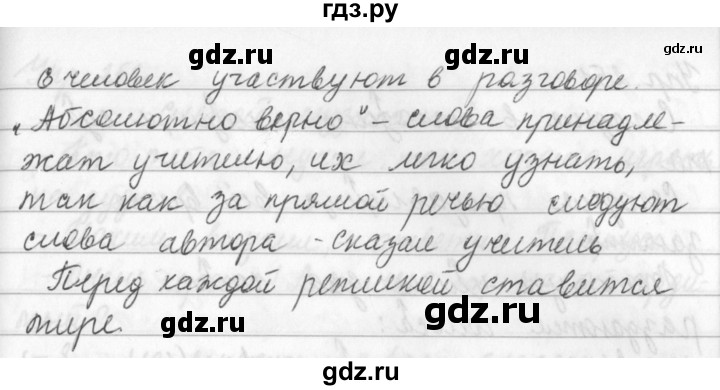 гдз.ру
gdz.ru gdz.ru
gdz.ru
6 человек участвуют в разговоре.
„Абсолютно верно" – слова принадле-
жат учителю, их легко узнать,
так как за прямой речью следуют
слова автора – сказал учитель
Перед каждой репликой ставится
тире.
gdz.ru gdz.ru
gdz.ru